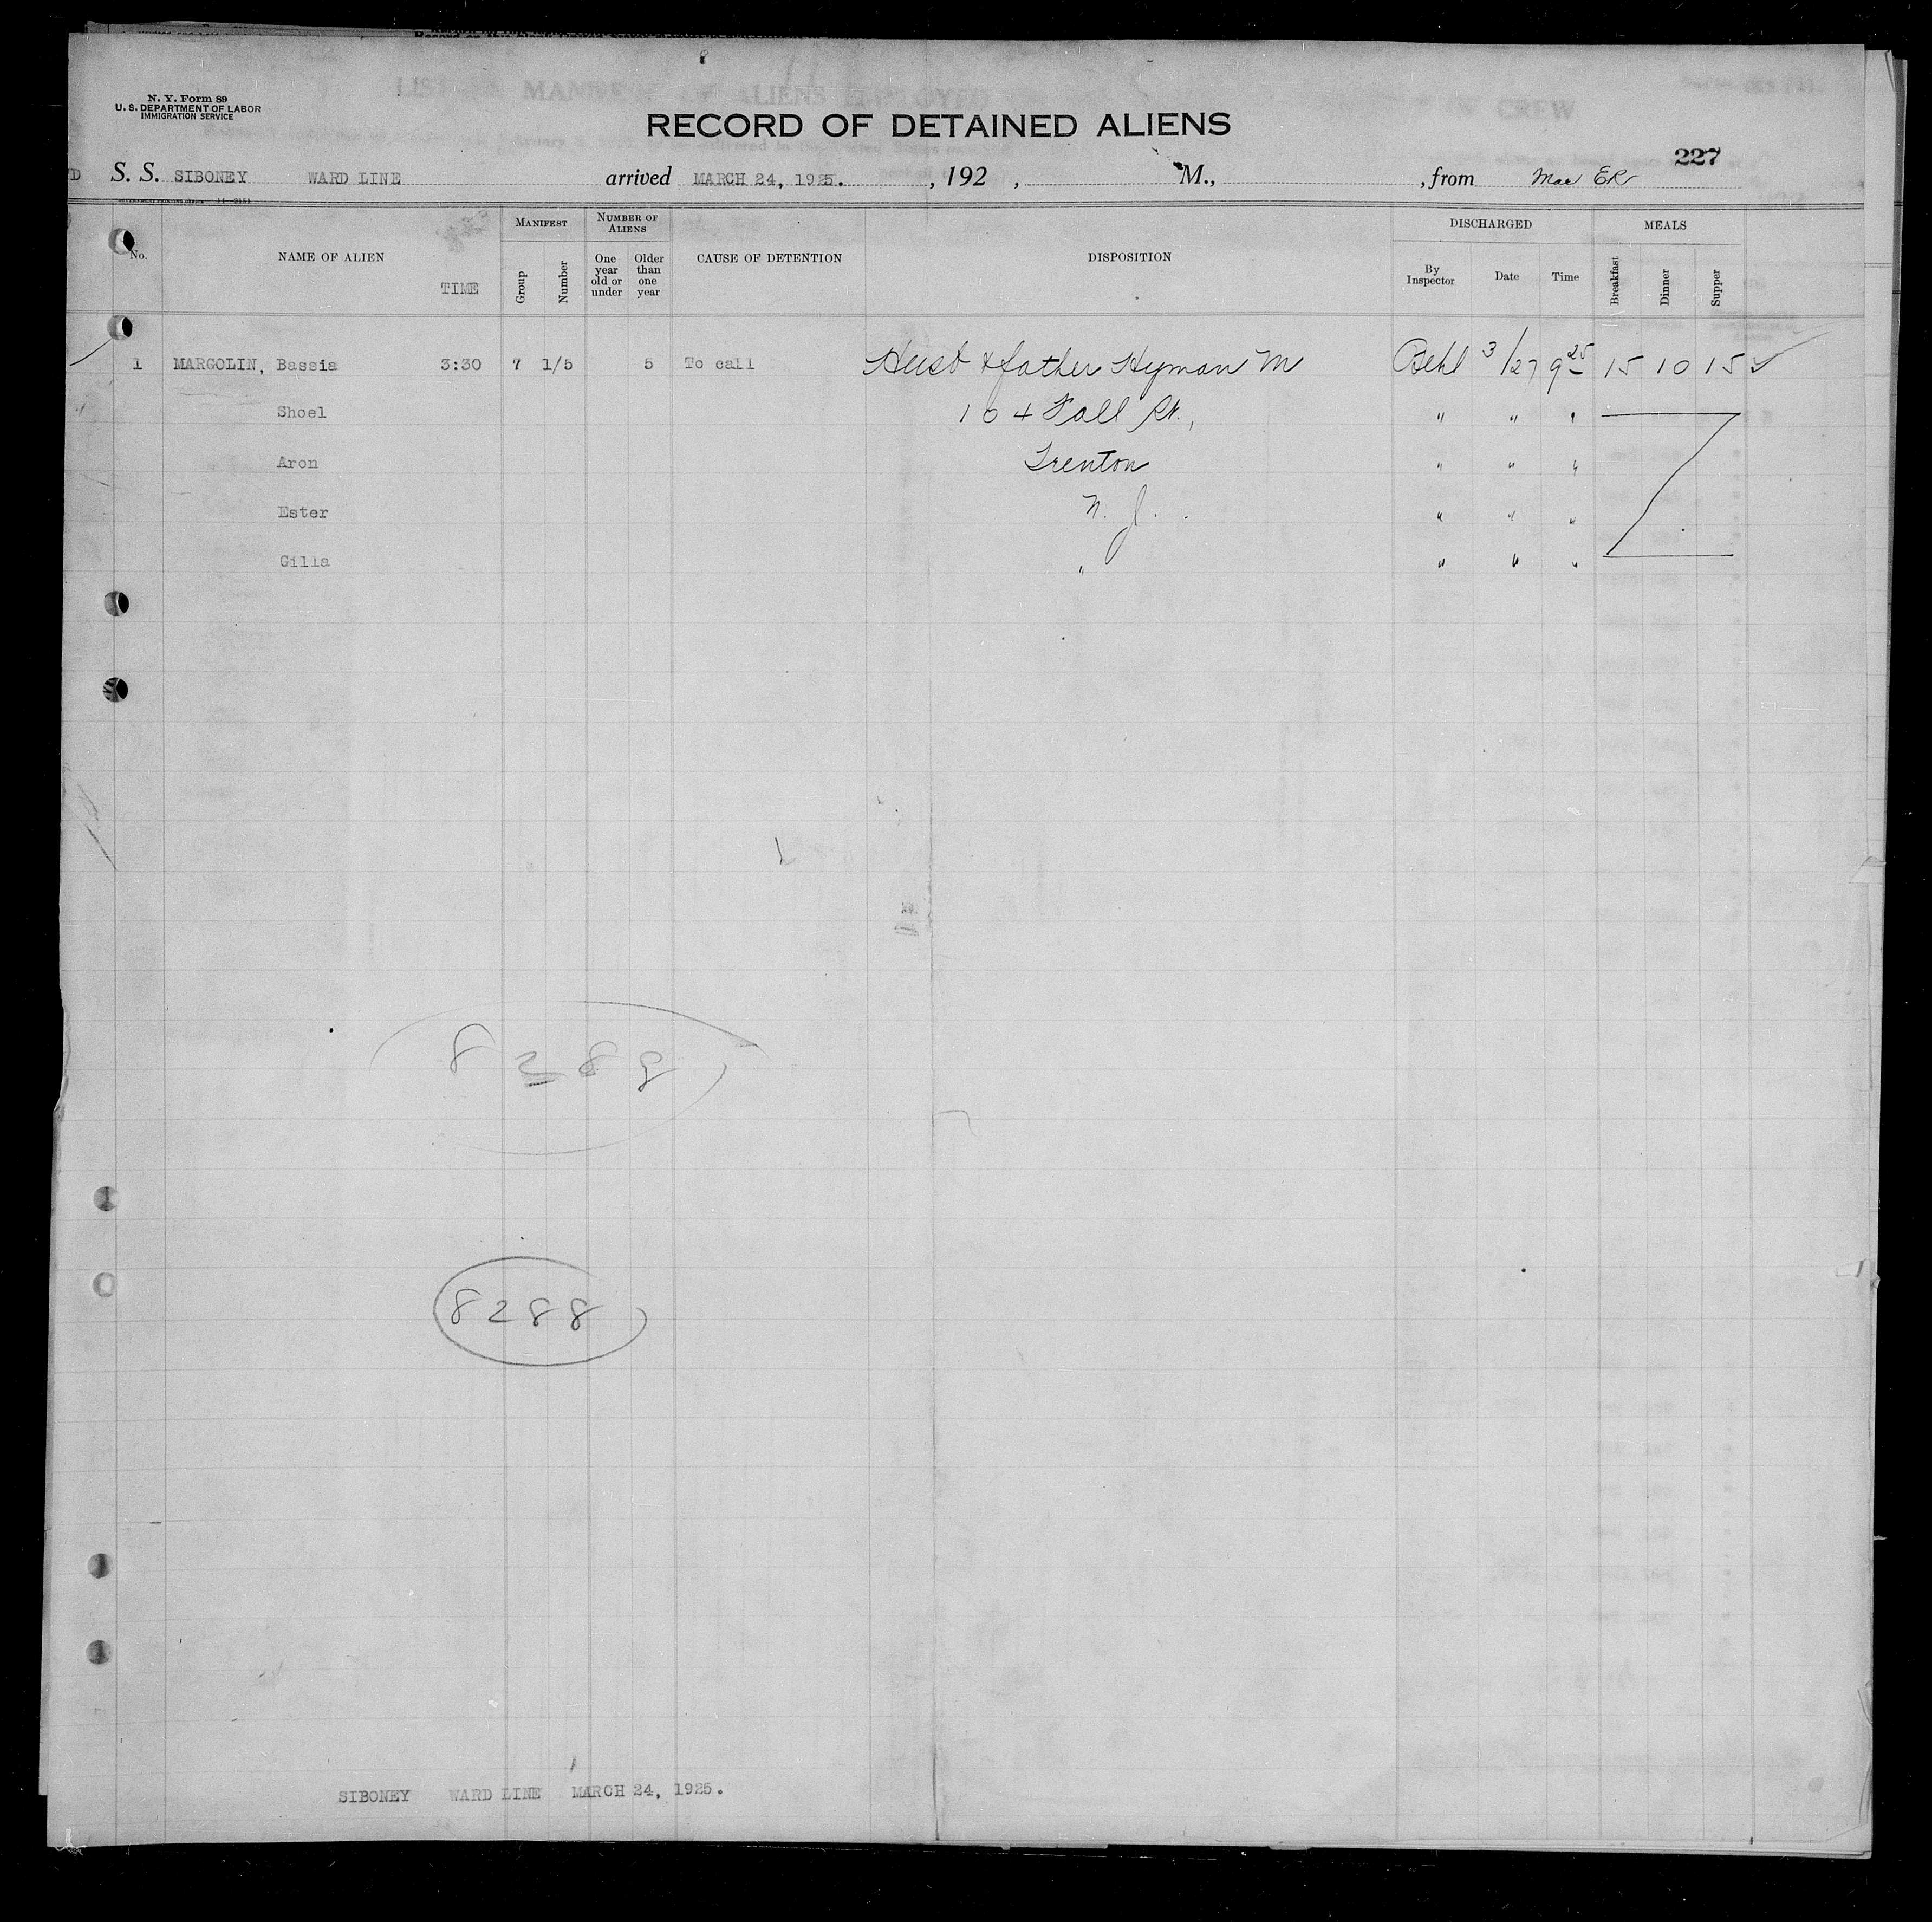 N. Y. Form 89
U. S. DEPARTMENT OF LABOR
IMMIGRATION SERVICE
RECORD OF DETAINED ALIENS
227
S. S. SIBONEY WARD LINE arrived MARCH 24, 1925. , 192 , M., , from
MANIFEST NUMBER OF ALIENS DISCHARGED MEALS
No. NAME OF ALIEN TIME Group Number One year old or under Older than one year CAUSE OF DETENTION DISPOSITION By Inspector Date Time Breakfast Dinner Supper
1 MARGOLIN, Bassia 3:30 7 1/5 5 To call Husb & father Hyman M 3/27 9 25 15 10 15
Shoel 104 Fall St., " " "
Aron Trenton " " "
Ester N. J. " " "
Gilla " " " "
8289
8288
SIBONEY WARD LINE MARCH 24, 1925.